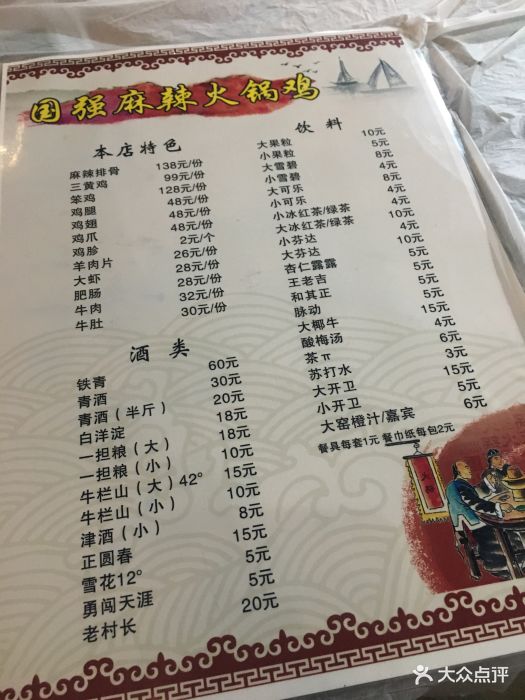 国强麻辣火锅鸡
本店特色
麻辣排骨 138元/份
三黄鸡 99元/份
笨鸡 128元/份
鸡腿 48元/份
鸡翅 48元/份
鸡爪 48元/份
鸡胗 2元/个
羊肉片 26元/份
大虾 28元/份
肥肠 28元/份
牛肉 32元/份
牛肚 30元/份
酒类
铁青 60元
青酒 30元
青酒（半斤） 20元
白洋淀 18元
一担粮（大） 18元
一担粮（小） 10元
牛栏山（大）42° 15元
牛栏山（小） 10元
津酒（小） 8元
正圆春 15元
雪花12° 5元
勇闯天涯 5元
老村长 20元
饮料
大果粒 10元
小果粒 5元
大雪碧 8元
小雪碧 4元
大可乐 8元
小可乐 4元
小冰红茶/绿茶 4元
大冰红茶/绿茶 10元
小芬达 4元
大芬达 10元
杏仁露露 5元
王老吉 5元
和其正 5元
脉动 5元
大椰牛 15元
酸梅汤 4元
茶π 6元
苏打水 3元
大开卫 15元
小开卫 5元
大窑橙汁/嘉宾 6元
餐具每套1元 餐巾纸每包2元
大众点评